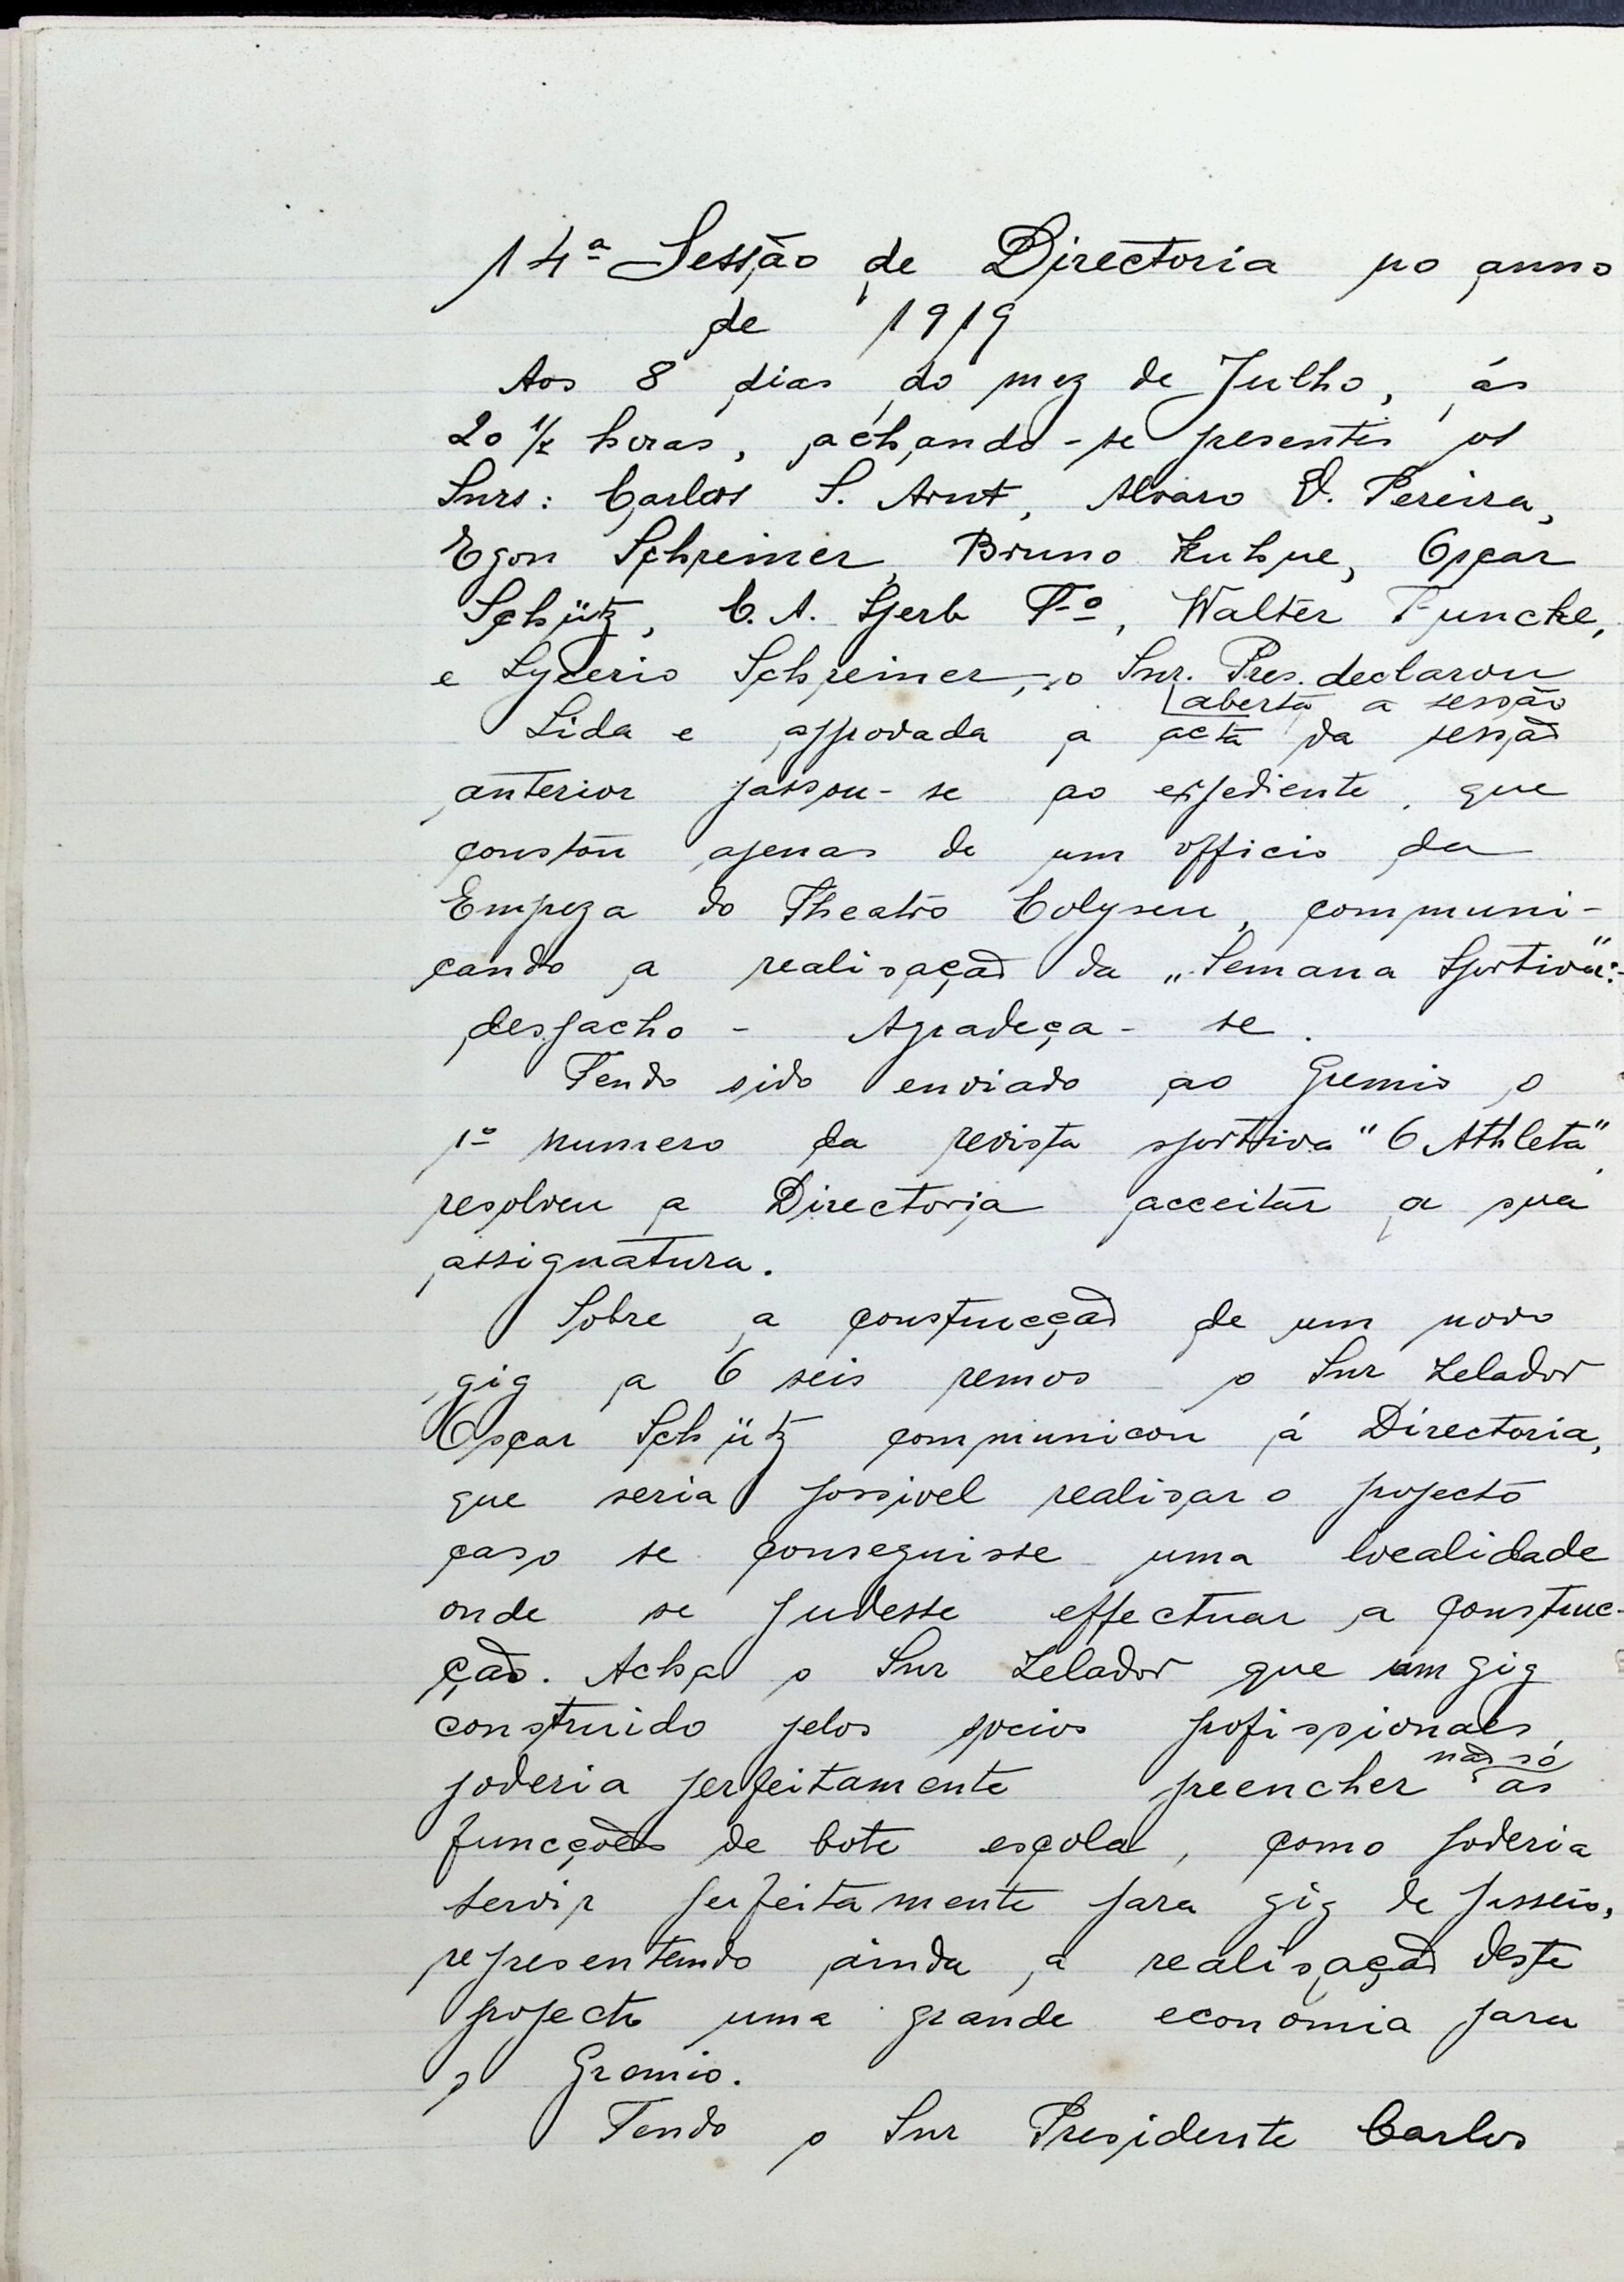 14ª Sessão de Directoria no anno
de 1919
Aos 8 dias do mez de Julho, ás
20 1/2 horas, achando-se presentes os
Snrs: Carlos S. Arnt, Alvaro V. Pereira,
Egon Schreiner, Bruno Kuhne, Oscar
Schütz, C. A. Sperb Fº, Walter Funcke,
e Lycerio Schreiner, o Snr. Pres. declarou
aberta a sessão
Lida e approvada a acta da sessão
anterior passou-se ao expediente, que
constou apenas de um officio da
Empreza do Theatro Colyseu, communi-
cando a realisação da „Semana Sportiva":-
despacho - Agradeça-se.
Tendo sido enviado ao Gremio o
1º numero da revista sportiva "O Athleta"
resolveu a Directoria acceitar a sua
assignatura.
Sobre a construcção de um novo
gig a 6 seis remos o Snr Zelador
Oscar Schütz communicou á Directoria,
que seria possivel realisar o projecto
caso se conseguisse uma localidade
onde se pudesse effectuar a construc-
ção. Acha o Snr Zelador que um gig
construido pelos socios profissionaes,
não só
poderia perfeitamente preencher as
funcções de bote escola, como poderia
servir perfeitamente para gig de passeio,
representando ainda a realisação deste
projecto uma grande economia para
o Gremio.
Tendo o Snr Presidente Carlos